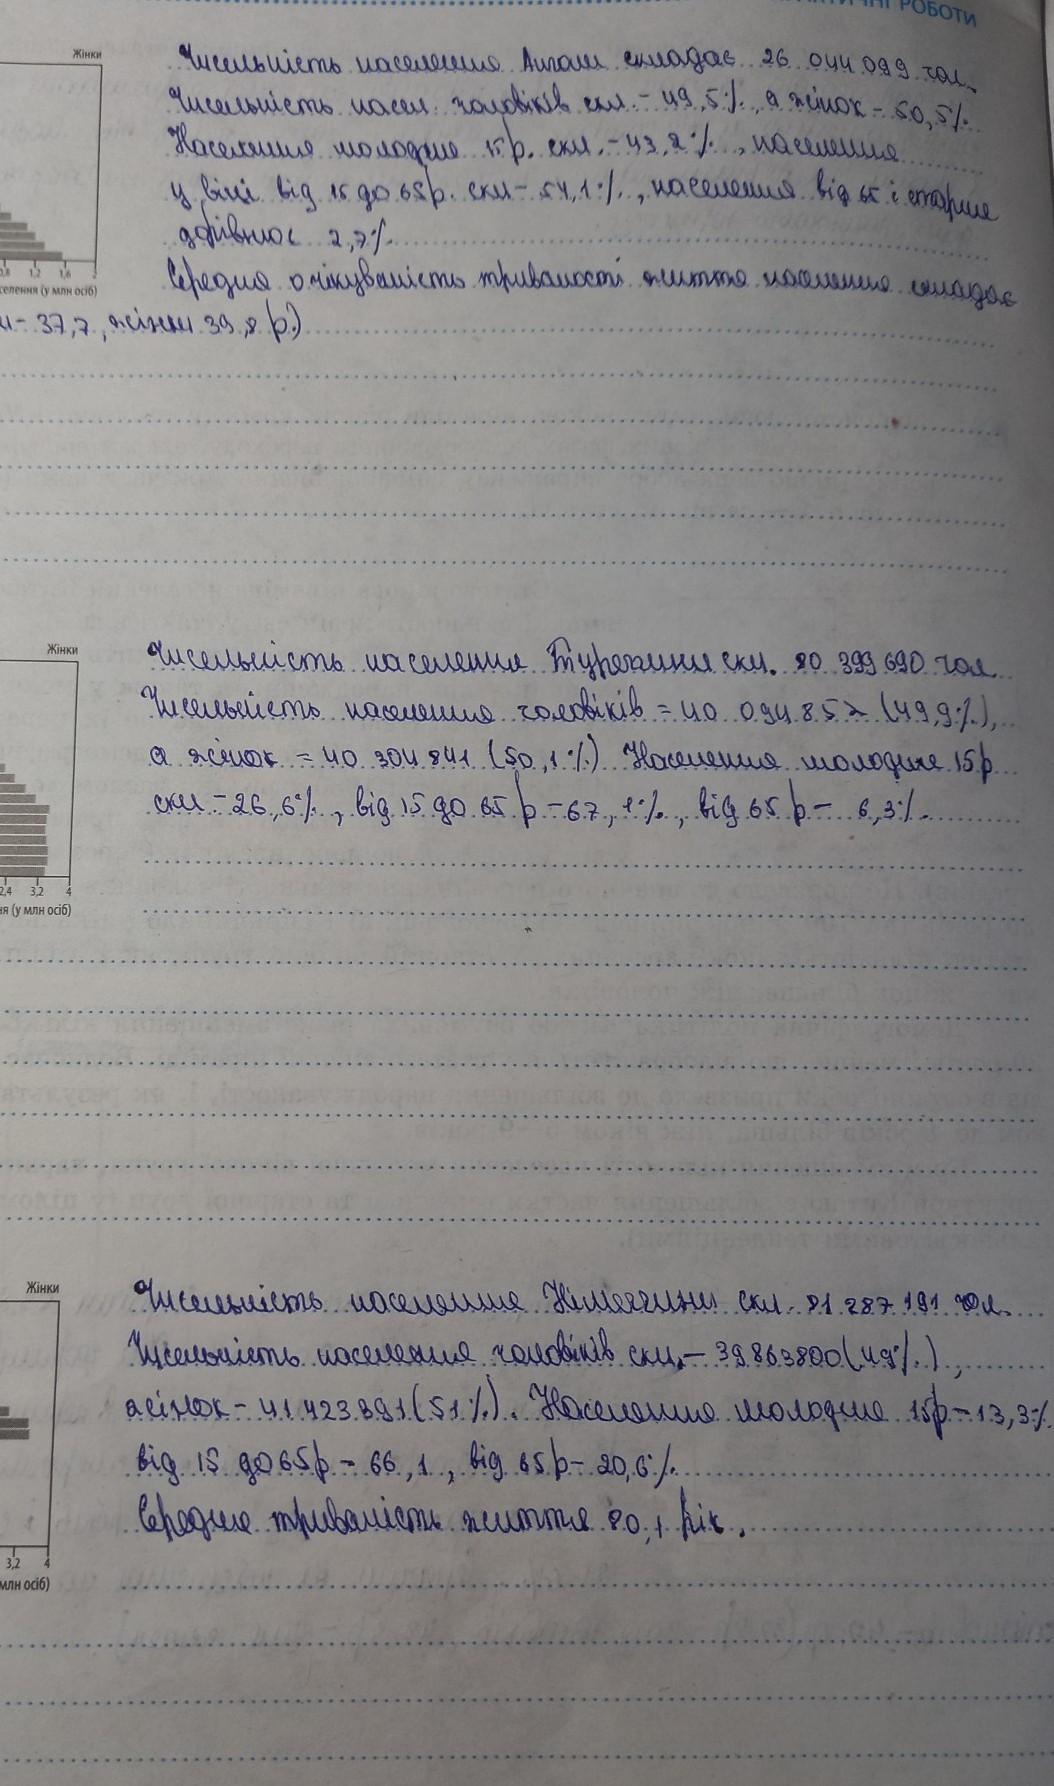 РОБОТИ
Жінки
Чисельність населення Анголи складає 26 044 099 чол.
Чисельність насел. чоловіків скл. – 49,5%, а жінок – 50,5%
Населення молодше 15р. скл. – 43,2%, населення
у віці від 15 до 65р. скл – 54,1%, населення від 65 і старше
дорівнює 2,7%
0,8 1,2 1,6 2
селення (у млн осіб)
Середня очікуваність тривалості життя населення складає
– 37,7, жінки 39,8 р.)
Жінки
Чисельність населення Туреччини скл. 80 399 690 чол.
Чисельність населення чоловіків = 40 094 857 (49,9%),
а жінок = 40 304 841 (50,1%) Населення молодше 15р
скл – 26,6%, від 15 до 65 р – 67,1%, від 65 р – 6,3%.
2,4 3,2 4
ня (у млн осіб)
Жінки
Чисельність населення Німеччини скл. 81 287 191 чол.
Чисельність населення чоловіків скл. – 39 863 800 (49%),
жінок – 41 423 391 (51%). Населення молодше 15р – 13,3%
від 15 до 65р – 66,1, від 65р – 20,6%
Середнє тривалість життя 80,1 рік.
3,2 4
млн осіб)